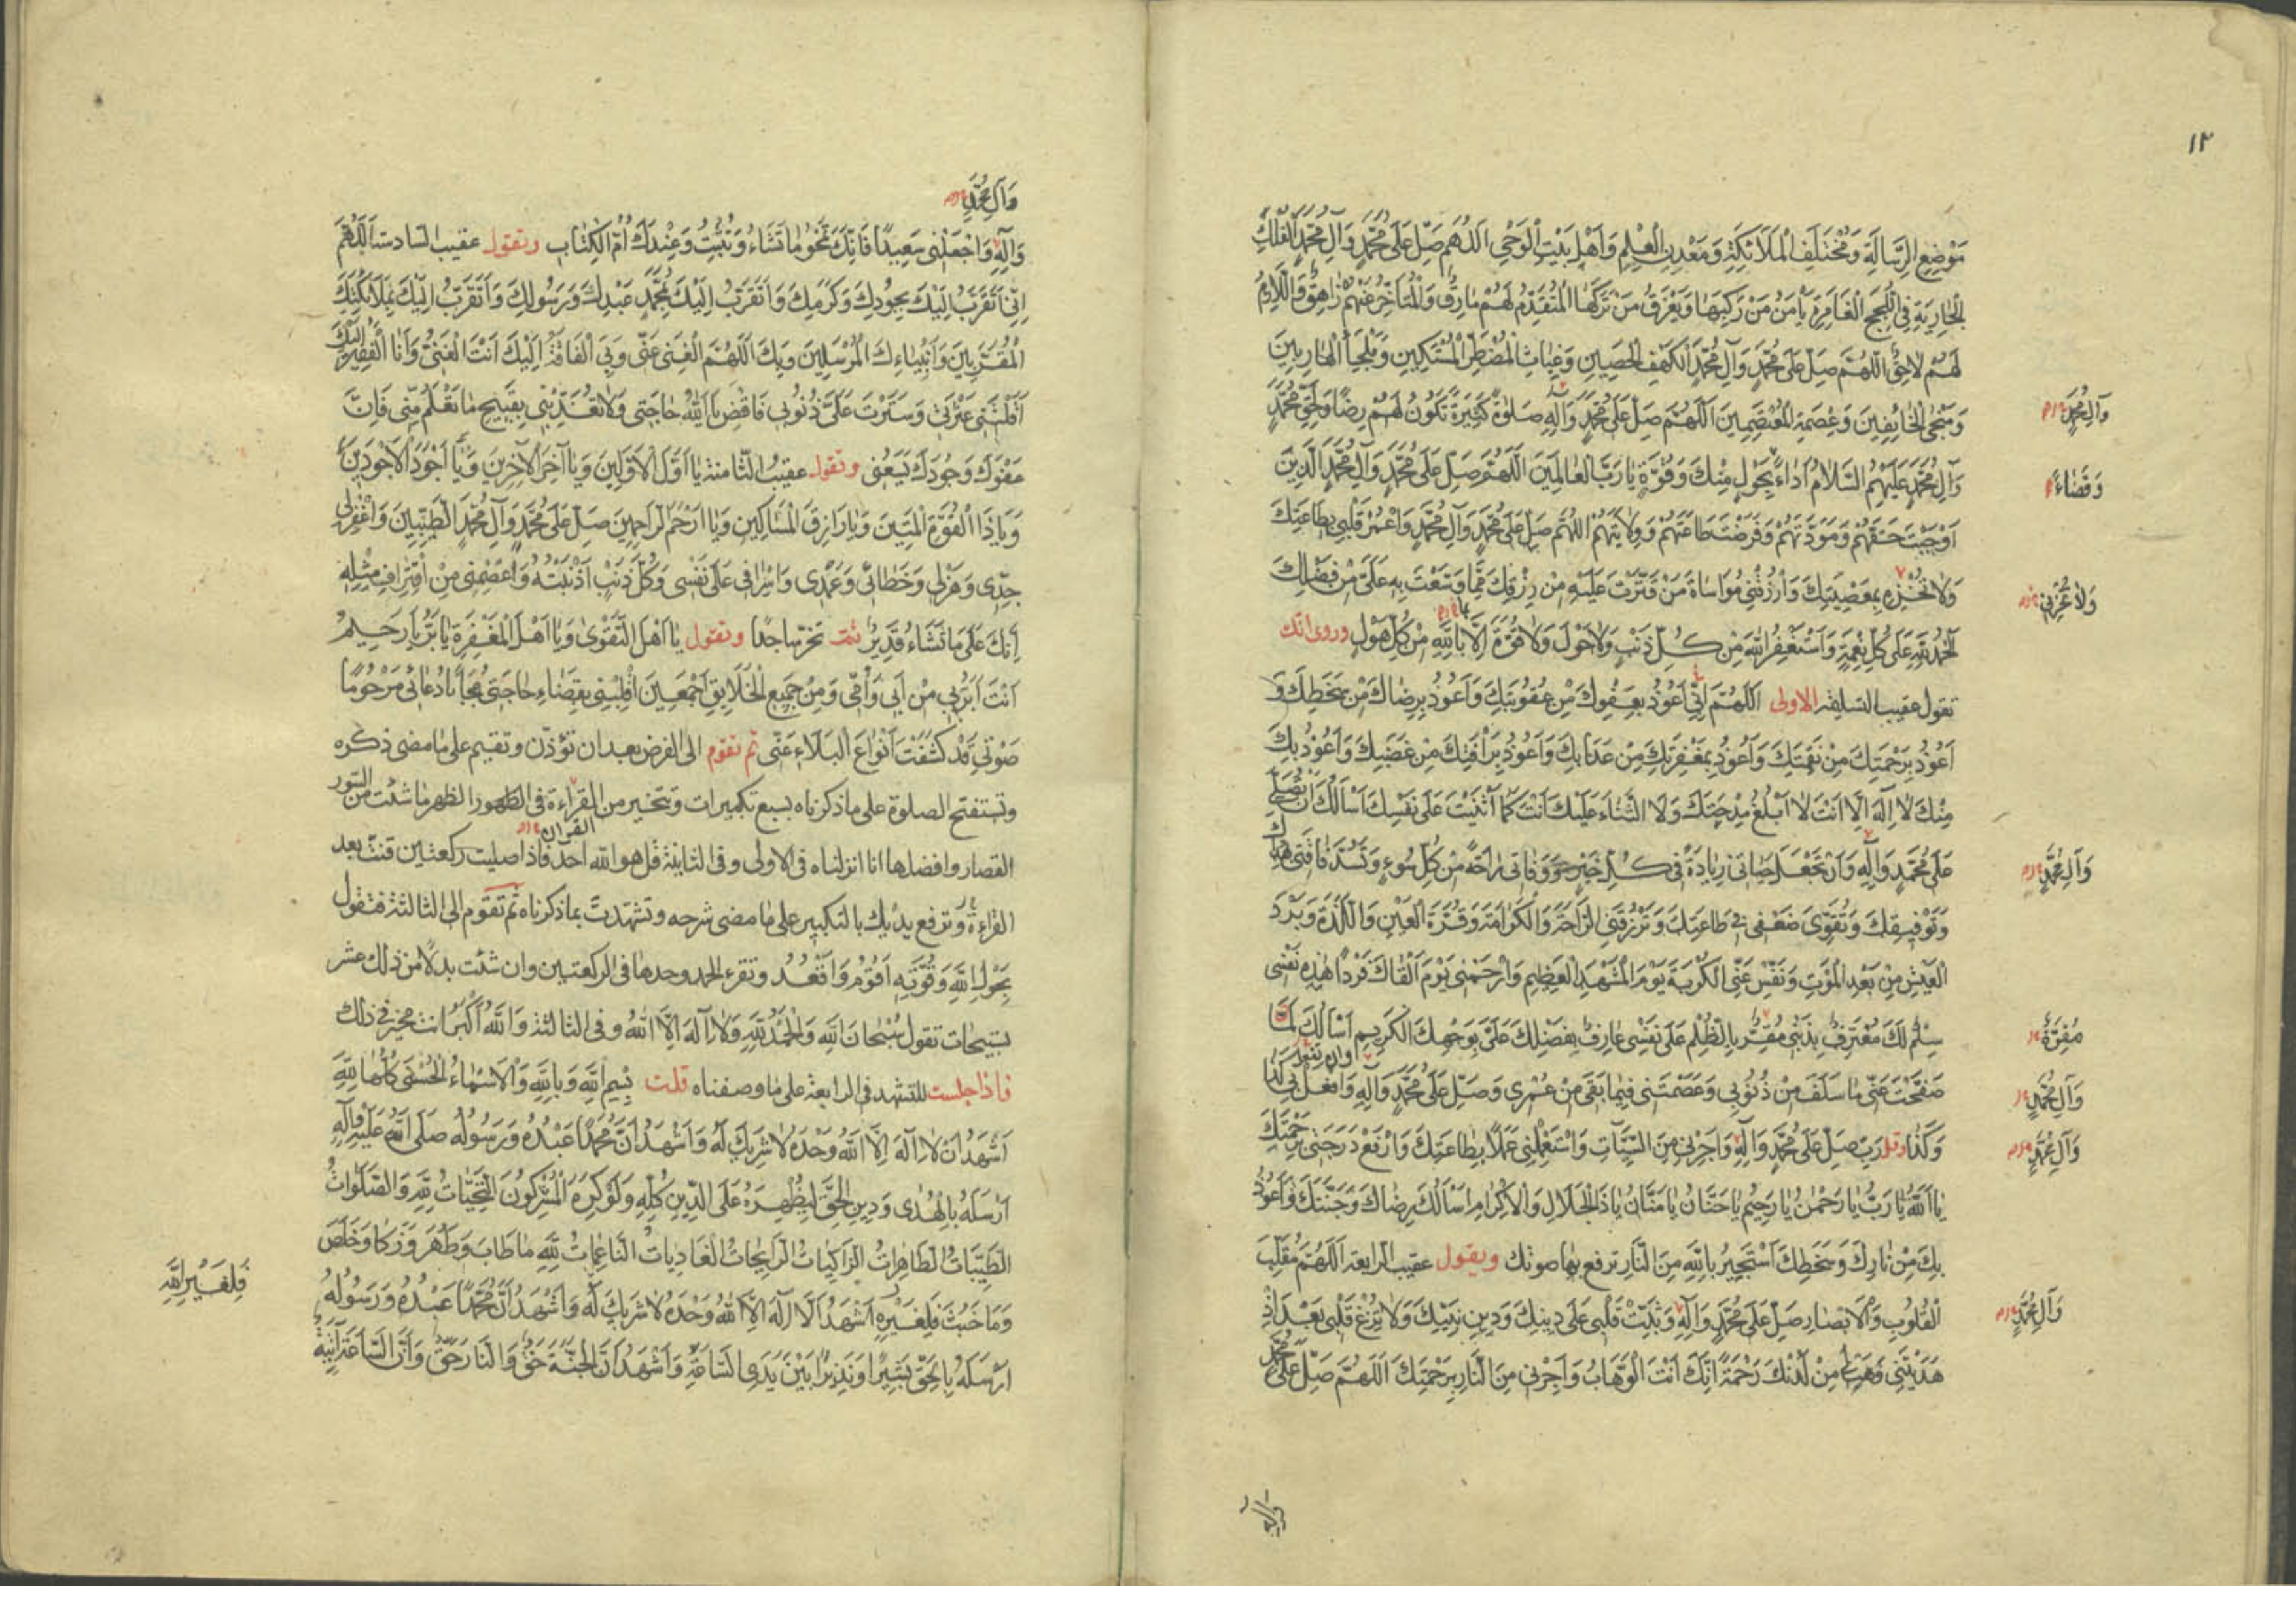 ١٢
مَوْضِعِ الرِّسَالَةِ وَمُخْتَلَفِ الْمَلَائِكَةِ وَمَعْدِنِ الْعِلْمِ وَاَهْلِ بَيْتِ الْوَحْيِ اَللّٰهُمَّ صَلِّ عَلٰى مُحَمَّدٍ وَآلِ مُحَمَّدٍ الْفُلْكِ
الْجَارِيَةِ فِي اللُّجَجِ الْغَامِرَةِ يَأْمَنُ مَنْ رَكِبَهَا وَيَغْرَقُ مَنْ تَرَكَهَا الْمُتَقَدِّمُ لَهُمْ مَارِقٌ وَالْمُتَأَخِّرُ عَنْهُمْ زَاهِقٌ وَاللَّازِمُ
لَهُمْ لَاحِقٌ اَللّٰهُمَّ صَلِّ عَلٰى مُحَمَّدٍ وَآلِ مُحَمَّدٍ الْكَهْفِ الْحَصِينِ وَغِيَاثِ الْمُضْطَرِّ الْمُسْتَكِينِ وَمَلْجَأِ الْهَارِبِينَ
وَمَنْجَى الْخَائِفِينَ وَعِصْمَةِ الْمُعْتَصِمِينَ اَللّٰهُمَّ صَلِّ عَلٰى مُحَمَّدٍ وَآلِهِ صَلٰوةً كَثِيرَةً تَكُونُ لَهُمْ رِضًا وَلِحَقِّ مُحَمَّدٍ
وَآلِ مُحَمَّدٍ
وَآلِ مُحَمَّدٍ عَلَيْهِمُ السَّلَامُ اَدَاءً بِحَوْلٍ مِنْكَ وَقُوَّةٍ يَا رَبَّ الْعَالَمِينَ اَللّٰهُمَّ صَلِّ عَلٰى مُحَمَّدٍ وَآلِ مُحَمَّدٍ الَّذِينَ
وَقَضَاءً
اَوْجَبْتَ حَقَّهُمْ وَمَوَدَّتَهُمْ وَفَرَضْتَ طَاعَتَهُمْ وَوِلَايَتَهُمْ اَللّٰهُمَّ صَلِّ عَلٰى مُحَمَّدٍ وَآلِ مُحَمَّدٍ وَاعْمُرْ قَلْبِي بِطَاعَتِكَ
وَلَا تُخْزِهِ بِمَعْصِيَتِكَ وَارْزُقْنِي مُوَاسَاةَ مَنْ قَتَّرْتَ عَلَيْهِ مِنْ رِزْقِكَ مِمَّا وَسَّعْتَ بِهِ عَلَيَّ مِنْ فَضْلِكَ
وَلَا تُخْزِنِي
اَلْحَمْدُ لِلّٰهِ عَلٰى كُلِّ نِعْمَةٍ وَاَسْتَغْفِرُ اللّٰهَ مِنْ كُلِّ ذَنْبٍ وَلَا حَوْلَ وَلَا قُوَّةَ اِلَّا بِاللّٰهِ مِنْ كُلِّ هَوْلٍ وروى انك
تقول عقيب التسليمة الاولى اَللّٰهُمَّ اِنِّي اَعُوذُ بِعَفْوِكَ مِنْ عُقُوبَتِكَ وَاَعُوذُ بِرِضَاكَ مِنْ سَخَطِكَ وَ
اَعُوذُ بِرَحْمَتِكَ مِنْ نَقِمَتِكَ وَاَعُوذُ بِمَغْفِرَتِكَ مِنْ عَذَابِكَ وَاَعُوذُ بِرَأْفَتِكَ مِنْ غَضَبِكَ وَاَعُوذُ بِكَ
مِنْكَ لَا اِلٰهَ اِلَّا اَنْتَ لَا اَبْلُغُ مِدْحَتَكَ وَلَا الثَّنَاءَ عَلَيْكَ اَنْتَ كَمَا اَثْنَيْتَ عَلٰى نَفْسِكَ اَسْاَلُكَ اَنْ تُصَلِّيَ
عَلٰى مُحَمَّدٍ وَآلِهِ وَاَنْ تَجْعَلَ حَيَاتِي زِيَادَةً فِي كُلِّ خَيْرٍ وَوَفَاتِي رَاحَةً مِنْ كُلِّ سُوءٍ وَتَسُدَّ فَاقَتِي بِهُدَاكَ
وَآلِ مُحَمَّدٍ
وَتَوْفِيقِكَ وَتُقَوِّيَ ضَعْفِي فِي طَاعَتِكَ وَتَرْزُقَنِي الرَّاحَةَ وَالْكَرَامَةَ وَقُرَّةَ الْعَيْنِ وَاللَّذَّةَ وَبَرْدَ
الْعَيْشِ مِنْ بَعْدِ الْمَوْتِ وَنَفِّسْ عَنِّي الْكُرْبَةَ يَوْمَ الْمَشْهَدِ الْعَظِيمِ وَارْحَمْنِي يَوْمَ اَلْقَاكَ فَرْدًا هٰذِهِ نَفْسِي
سِلْمٌ لَكَ مُعْتَرِفٌ بِذَنْبِي مُقِرٌّ بِالظُّلْمِ عَلٰى نَفْسِي عَارِفٌ بِفَضْلِكَ عَلَيَّ بِوَجْهِكَ الْكَرِيمِ اَسْاَلُكَ لَمَّا
مُقِرَّةٌ
صَفَحْتَ عَنِّي مَا سَلَفَ مِنْ ذُنُوبِي وَعَصَمْتَنِي فِيمَا بَقِيَ مِنْ عُمْرِي وَصَلِّ عَلٰى مُحَمَّدٍ وَآلِهِ وَافْعَلْ بِي كَذَا
وَآلِ مُحَمَّدٍ
وَكَذَا وقل رَبِّ صَلِّ عَلٰى مُحَمَّدٍ وَآلِهِ وَاَجِرْنِي مِنَ السَّيِّئَاتِ وَاسْتَعْمِلْنِي عَمَلًا بِطَاعَتِكَ وَارْفَعْ دَرَجَتِي بِرَحْمَتِكَ
وَآلِ مُحَمَّدٍ
يَا اَللّٰهُ يَا رَبُّ يَا رَحْمٰنُ يَا رَحِيمُ يَا حَنَّانُ يَا مَنَّانُ يَا ذَا الْجَلَالِ وَالْاِكْرَامِ اَسْاَلُكَ رِضَاكَ وَجَنَّتَكَ وَاَعُوذُ
بِكَ مِنْ نَارِكَ وَسَخَطِكَ اَسْتَجِيرُ بِاللّٰهِ مِنَ النَّارِ ترفع بها صوتك ويقول عقيب الرابعة اَللّٰهُمَّ مُقَلِّبَ
الْقُلُوبِ وَالْاَبْصَارِ صَلِّ عَلٰى مُحَمَّدٍ وَآلِهِ وَثَبِّتْ قَلْبِي عَلٰى دِينِكَ وَدِينِ نَبِيِّكَ وَلَا تُزِغْ قَلْبِي بَعْدَ اِذْ
وَآلِ مُحَمَّدٍ
هَدَيْتَنِي وَهَبْ لِي مِنْ لَدُنْكَ رَحْمَةً اِنَّكَ اَنْتَ الْوَهَّابُ وَاَجِرْنِي مِنَ النَّارِ بِرَحْمَتِكَ اَللّٰهُمَّ صَلِّ عَلٰى مُحَمَّدٍ
وَآلِهِ
وَآلِ مُحَمَّدٍ
وَآلِهِ وَاجْعَلْنِي سَعِيدًا فَاِنَّكَ تَمْحُو مَا تَشَاءُ وَتُثْبِتُ وَعِنْدَكَ اُمُّ الْكِتَابِ وتقول عقيب السادسة اَللّٰهُمَّ
اِنِّي اَتَقَرَّبُ اِلَيْكَ بِجُودِكَ وَكَرَمِكَ وَاَتَقَرَّبُ اِلَيْكَ بِمُحَمَّدٍ عَبْدِكَ وَرَسُولِكَ وَاَتَقَرَّبُ اِلَيْكَ بِمَلَائِكَتِكَ
الْمُقَرَّبِينَ وَاَنْبِيَاءِكَ الْمُرْسَلِينَ وَبِكَ اَللّٰهُمَّ الْغِنٰى عَنِّي وَبِيَ الْفَاقَةُ اِلَيْكَ اَنْتَ الْغَنِيُّ وَاَنَا الْفَقِيرُ اِلَيْكَ
اَقَلْتَنِي عَثْرَتِي وَسَتَرْتَ عَلَيَّ ذُنُوبِي فَاقْضِ يَا اَللّٰهُ حَاجَتِي وَلَا تُعَذِّبْنِي بِقَبِيحِ مَا تَعْلَمُ مِنِّي فَاِنَّ
عَفْوَكَ وَجُودَكَ يَسَعُنِي وتقول عقيب الثامنة يَا اَوَّلَ الْاَوَّلِينَ وَيَا آخِرَ الْآخِرِينَ وَيَا اَجْوَدَ الْاَجْوَدِينَ
وَيَا ذَا الْقُوَّةِ الْمَتِينَ وَيَا رَازِقَ الْمَسَاكِينِ وَيَا اَرْحَمَ الرَّاحِمِينَ صَلِّ عَلٰى مُحَمَّدٍ وَآلِ مُحَمَّدٍ الطَّيِّبِينَ وَاغْفِرْ لِي
جِدِّي وَهَزْلِي وَخَطَائِي وَعَمْدِي وَاِسْرَافِي عَلٰى نَفْسِي وَكُلَّ ذَنْبٍ اَذْنَبْتُهُ وَاعْصِمْنِي مِنِ اقْتِرَافِ مِثْلِهِ
اِنَّكَ عَلٰى مَا تَشَاءُ قَدِيرٌ ثمّ تخرّ ساجدًا وتقول يَا اَهْلَ التَّقْوٰى وَيَا اَهْلَ الْمَغْفِرَةِ يَا بَرُّ يَا رَحِيمُ
اَنْتَ اَبَرُّ بِي مِنْ اَبِي وَاُمِّي وَمِنْ جَمِيعِ الْخَلَايِقِ اَجْمَعِينَ اقْلِبْنِي بِقَضَاءِ حَاجَتِي مُجَابًا دُعَائِي مَرْحُومًا
صَوْتِي قَدْ كَشَفْتَ اَنْوَاعَ الْبَلَاءِ عَنِّي ثم تقوم الى الفرض بعد ان تؤذن وتقيم على ما مضى ذكره
وتستفتح الصلوة على ما ذكرناه بسبع تكبيرات وتتخير من القراءة في الظهر ما شئت من السور
القصار وافضلها انا انزلناه في الاولى وفي الثانية قل هو الله احد فاذا صليت ركعتين قنت بعد
القراءة وترفع يديك بالتكبير على ما مضى شرحه وتشهدت بما ذكرناه ثم تقوم الى الثالثة فتقول
بِحَوْلِ اللّٰهِ وَقُوَّتِهِ اَقُومُ وَاَقْعُدُ وتقرء الحمد وحدها في الركعتين وان شئت بدلًا من ذلك عشر
تسبيحات تقول سُبْحَانَ اللّٰهِ وَالْحَمْدُ لِلّٰهِ وَلَا اِلٰهَ اِلَّا اللّٰهُ وفي الثالثة وَاللّٰهُ اَكْبَرُ انت مخير في ذلك
فاذا جلست للتشهد في الرابعة على ما وصفناه قلت بِسْمِ اللّٰهِ وَبِاللّٰهِ وَالْاَسْمَاءُ الْحُسْنٰى كُلُّهَا لِلّٰهِ
اَشْهَدُ اَنْ لَا اِلٰهَ اِلَّا اللّٰهُ وَحْدَهُ لَا شَرِيكَ لَهُ وَاَشْهَدُ اَنَّ مُحَمَّدًا عَبْدُهُ وَرَسُولُهُ صَلَّى اللّٰهُ عَلَيْهِ وَآلِهِ
اَرْسَلَهُ بِالْهُدٰى وَدِينِ الْحَقِّ لِيُظْهِرَهُ عَلَى الدِّينِ كُلِّهِ وَلَوْ كَرِهَ الْمُشْرِكُونَ اَلتَّحِيَّاتُ لِلّٰهِ وَالصَّلَوَاتُ
الطَّيِّبَاتُ الطَّاهِرَاتُ الزَّاكِيَاتُ الرَّايِحَاتُ الْغَادِيَاتُ النَّاعِمَاتُ لِلّٰهِ مَا طَابَ وَطَهُرَ وَزَكَا وَخَلَصَ
وَمَا خَبُثَ فَلِغَيْرِهِ اَشْهَدُ اَنْ لَا اِلٰهَ اِلَّا اللّٰهُ وَحْدَهُ لَا شَرِيكَ لَهُ وَاَشْهَدُ اَنَّ مُحَمَّدًا عَبْدُهُ وَرَسُولُهُ
فَلِغَيْرِ اللّٰهِ
اَرْسَلَهُ بِالْحَقِّ بَشِيرًا وَنَذِيرًا بَيْنَ يَدَيِ السَّاعَةِ وَاَشْهَدُ اَنَّ الْجَنَّةَ حَقٌّ وَالنَّارَ حَقٌّ وَاَنَّ السَّاعَةَ آتِيَةٌ